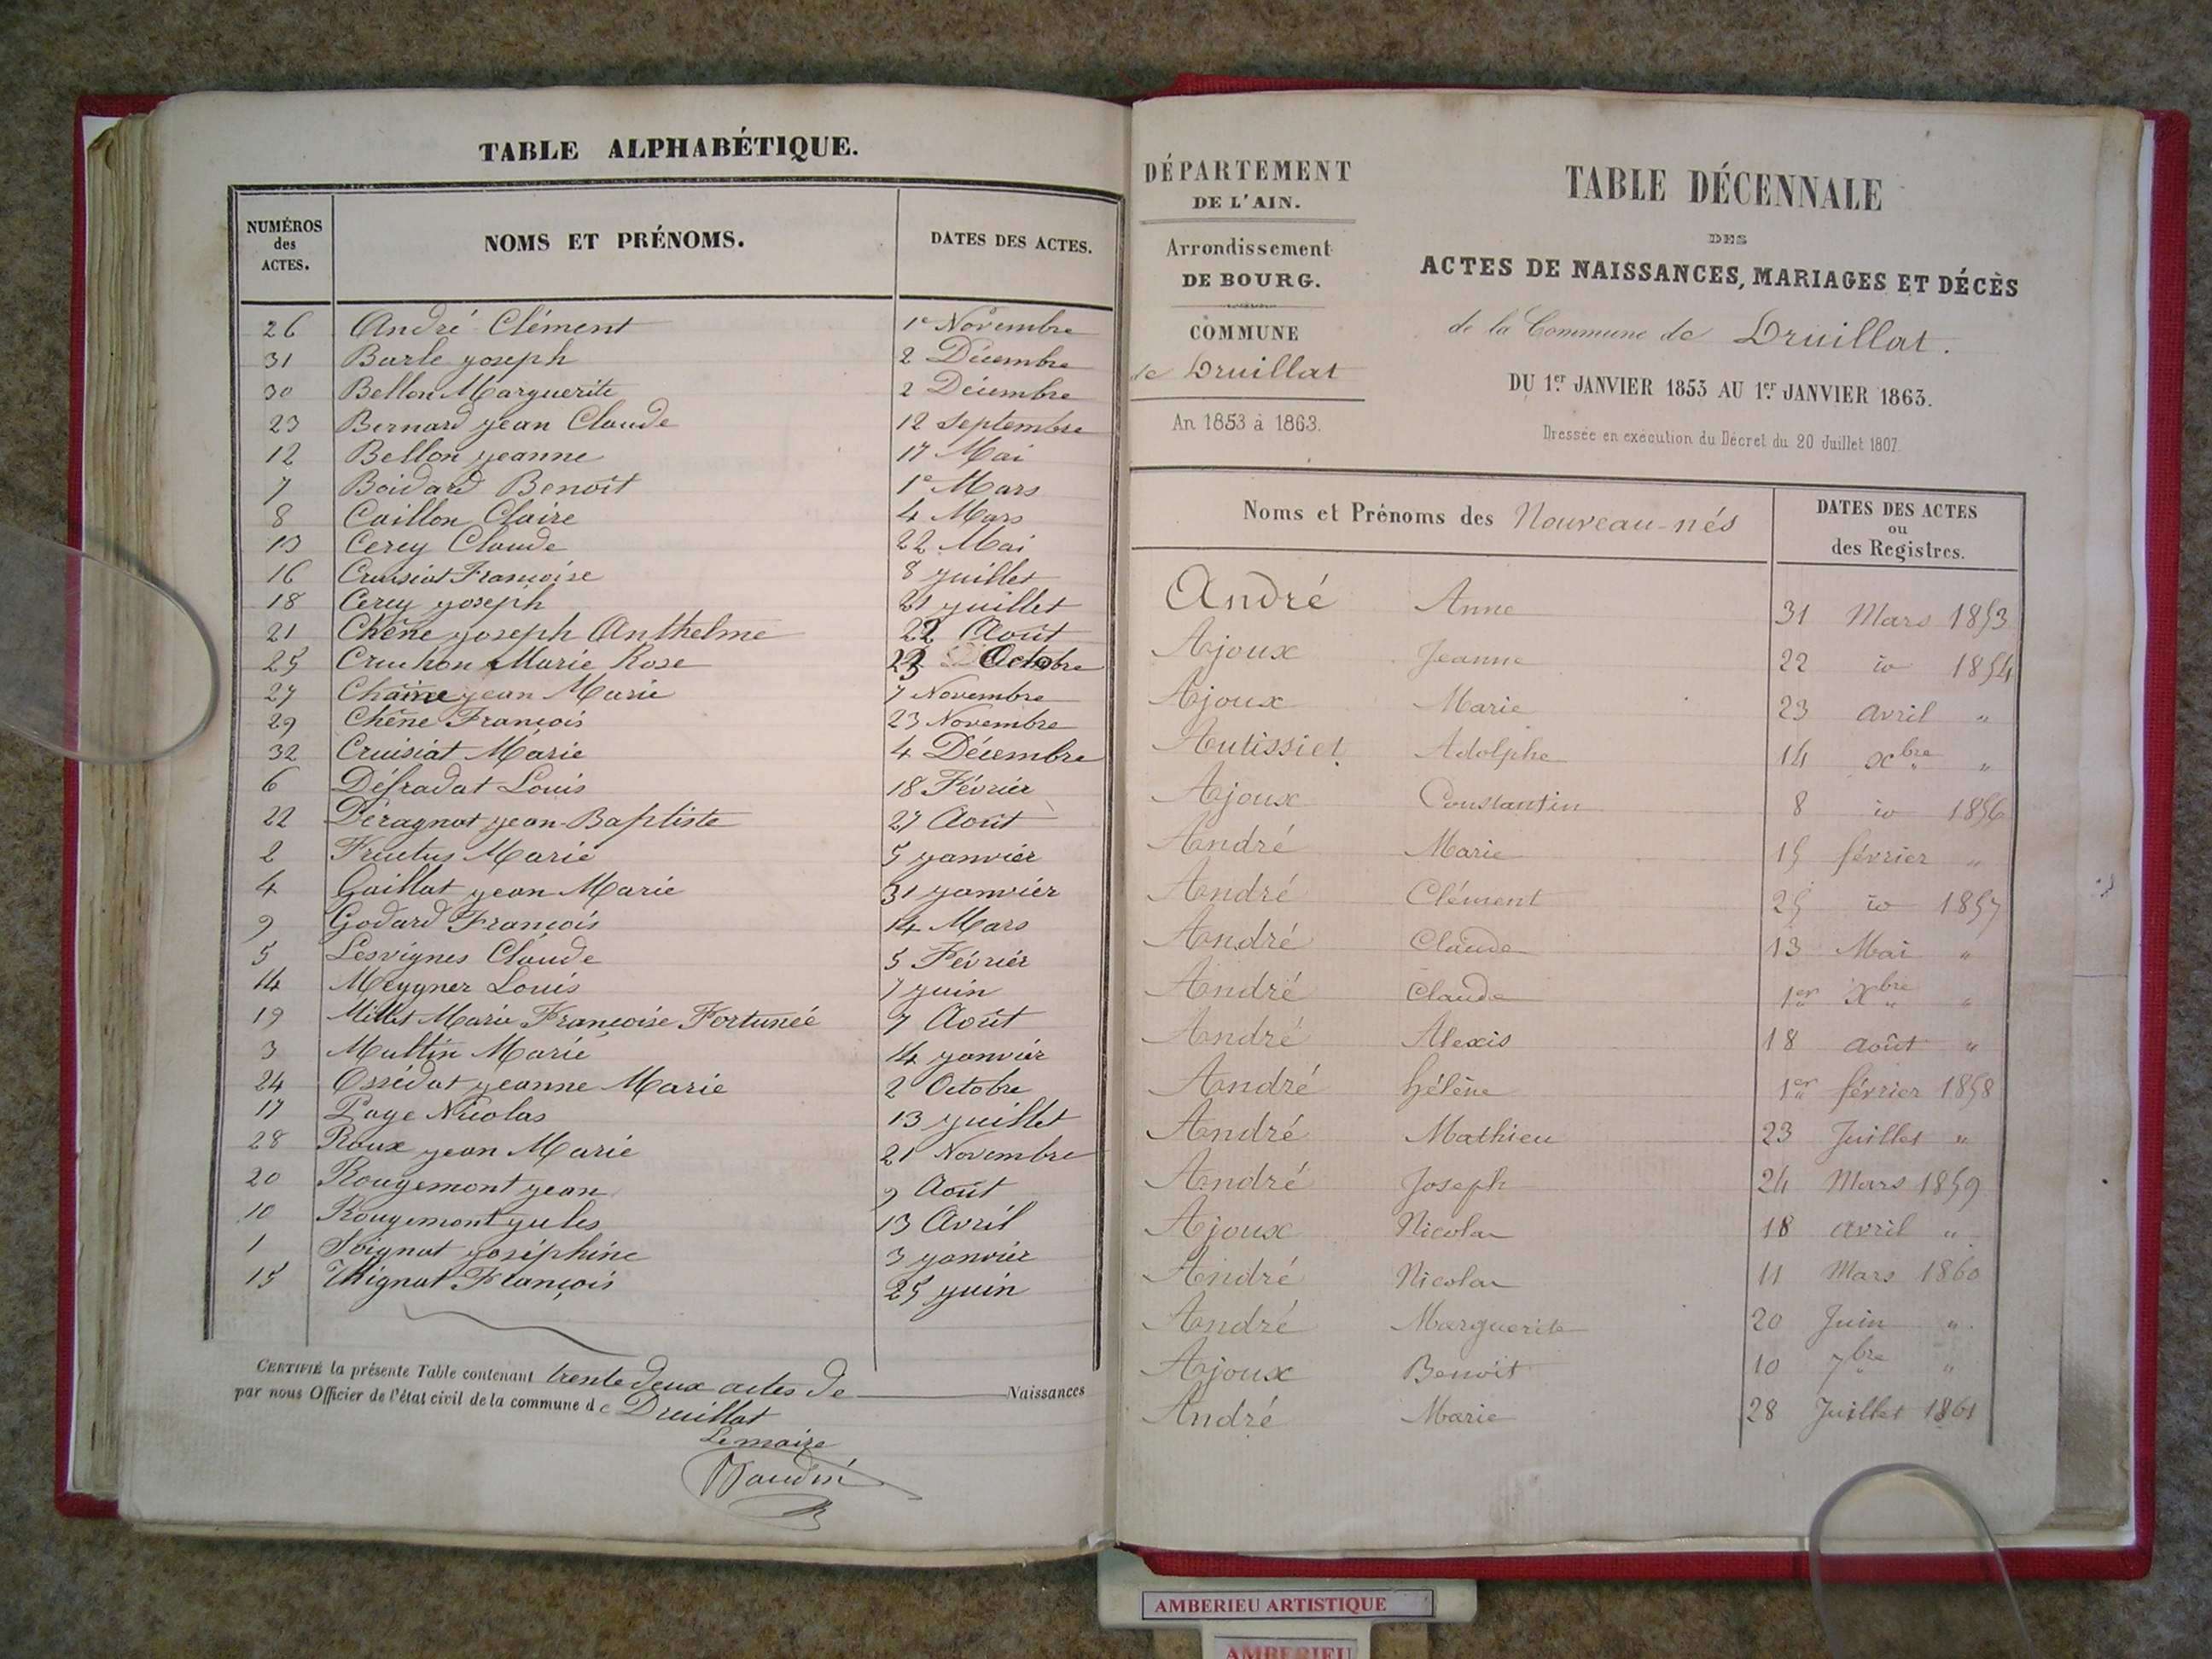 TABLE ALPHABÉTIQUE.
NUMÉROS des ACTES.
NOMS ET PRÉNOMS.
DATES DES ACTES.
26 André Clément 1e Novembre
31 Burle Joseph 2 Décembre
30 Bellon Marguerite 2 Décembre
23 Bernard Jean Claude 12 Septembre
12 Bellon Jeanne 17 Mai
7 Boidard Benoît 1e Mars
8 Caillon Claire 4 Mars
13 Cerey Claude 22 Mai
16 Cruisiat Françoise 8 Juillet
18 Cerey Joseph 21 Juillet
21 Chêne Joseph Anthelme 22 Août
25 Cruchon Marie Rose 23 Octobre
27 Chaine Jean Marie 7 Novembre
29 Chêne François 23 Novembre
32 Cruisiat Marie 4 Décembre
6 Défradat Louis 18 Février
22 Péragnat Jean-Baptiste 27 Août
2 Fructus Marie 5 Janvier
4 Gaillat Jean Marie 31 Janvier
9 Godard François 14 Mars
5 Lesvignes Claude 5 Février
14 Meygner Louis 7 Juin
19 Millet Marie Françoise Fortunée 7 Août
3 Multin Marie 14 Janvier
24 Ossédat Jeanne Marie 2 Octobre
17 Page Nicolas 13 Juillet
28 Roux Jean Marie 21 Novembre
20 Rougemont Jean 9 Août
10 Rougemont Jules 13 Avril
1 Soignat Joséphine 3 Janvier
15 Thignat François 25 Juin
CERTIFIÉ la présente Table contenant trente deux actes de Naissances
par nous Officier de l'état civil de la commune de Druillat
Le maire
DÉPARTEMENT
DE L'AIN.
Arrondissement
DE BOURG.
COMMUNE
de Druillat
An 1853 à 1863.
TABLE DÉCENNALE
DES
ACTES DE NAISSANCES, MARIAGES ET DÉCÈS
de la Commune de Druillat.
DU 1er JANVIER 1853 AU 1er JANVIER 1863.
Dressée en exécution du Décret du 20 Juillet 1807.
Noms et Prénoms des Nouveau-nés
DATES DES ACTES
ou
des Registres.
André Anne 31 Mars 1853
Ajoux Jeanne 22 id 1854
Ajoux Marie 23 avril "
Autissiet Adolphe 14 xbre "
Ajoux Constantin 8 id 1856
André Marie 15 février "
André Clément 25 id 1857
André Claude 13 Mai "
André Claude 1er Xbre "
André Alexis 18 août "
André hélène 1er février 1858
André Mathieu 23 Juillet "
André Joseph 24 Mars 1859
Ajoux Nicolas 18 avril "
André Nicolas 11 Mars 1860
André Marguerite 20 Juin "
Ajoux Benoit 10 7bre "
André Marie 28 Juillet 1861
AMBERIEU ARTISTIQUE
AMBERIEU